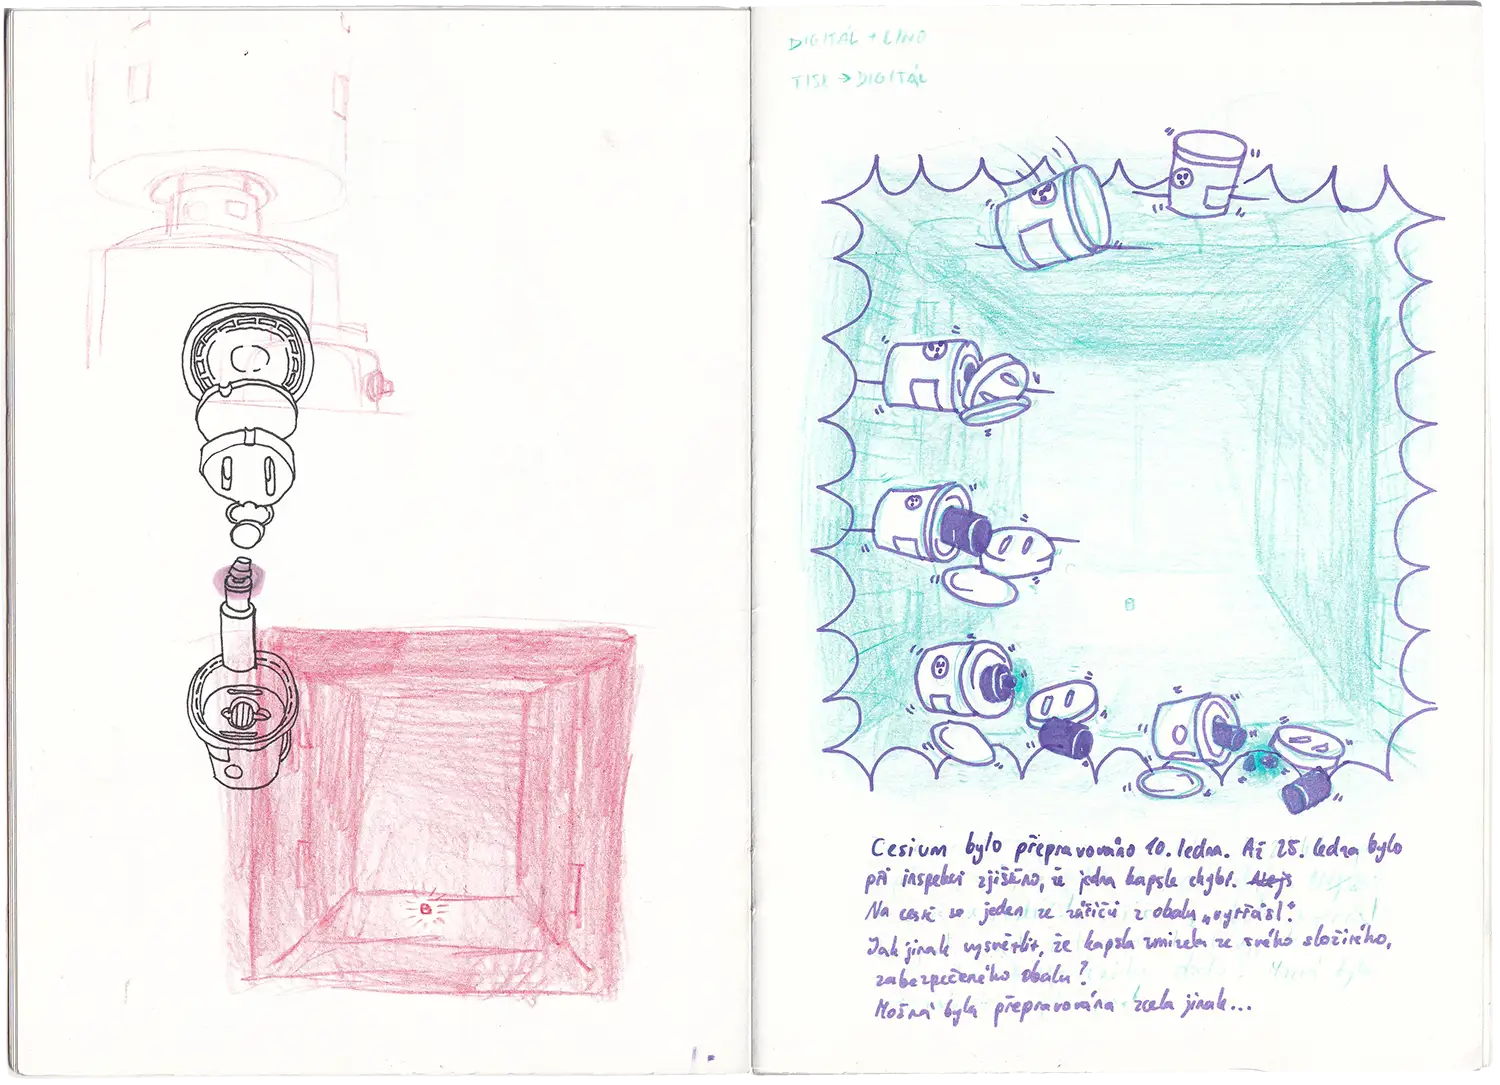 DIGITÁL + LINO
TISK → DIGITÁL
Cesium bylo přepravováno 10. ledna. Až 25. ledna bylo
při inspekci zjištěno, že jedna kapsle chybí.
Na cestě se jeden ze zářičů z obalu „vytřásl".
Jak jinak vysvětlit, že kapsla zmizela ze svého složitého,
zabezpečeného obalu?
Možná byla přepravována zcela jinak...
1.